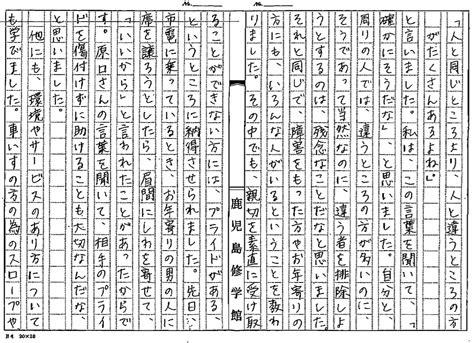 「人と同じところより、人と違うところ
がたくさんあるよね。」
と言いました。私は、この言葉を聞いて、
確かにそうだな、と思いました。自分と、
周りの人では、違うところの方が多いのに、
違うところがあって当然なのに、違う者を排除しよ
うとするのは、残念なことだなと思いました。
それと同じで、障害をもった方やお年寄りの
方にも、いろんな人がいるということを教わ
りました。その中でも、親切を素直に受け取
ることができない方には、プライドがある、
というところに納得させられました。先日、
市電に乗っているとき、お年寄りの男の人に
席を譲ろうとしたら、眉間にしわを寄せて、
「いいから」と言われたことがあったからで
す。原口さんの言葉を聞いて、相手のプライ
ドを傷付けずに助けることも大切なんだな、
と思いました。
他にも、環境やサービスのあり方について
も学びました。車いすの方の為のスロープや
鹿児島修学館
No.
No.
B4 20×20